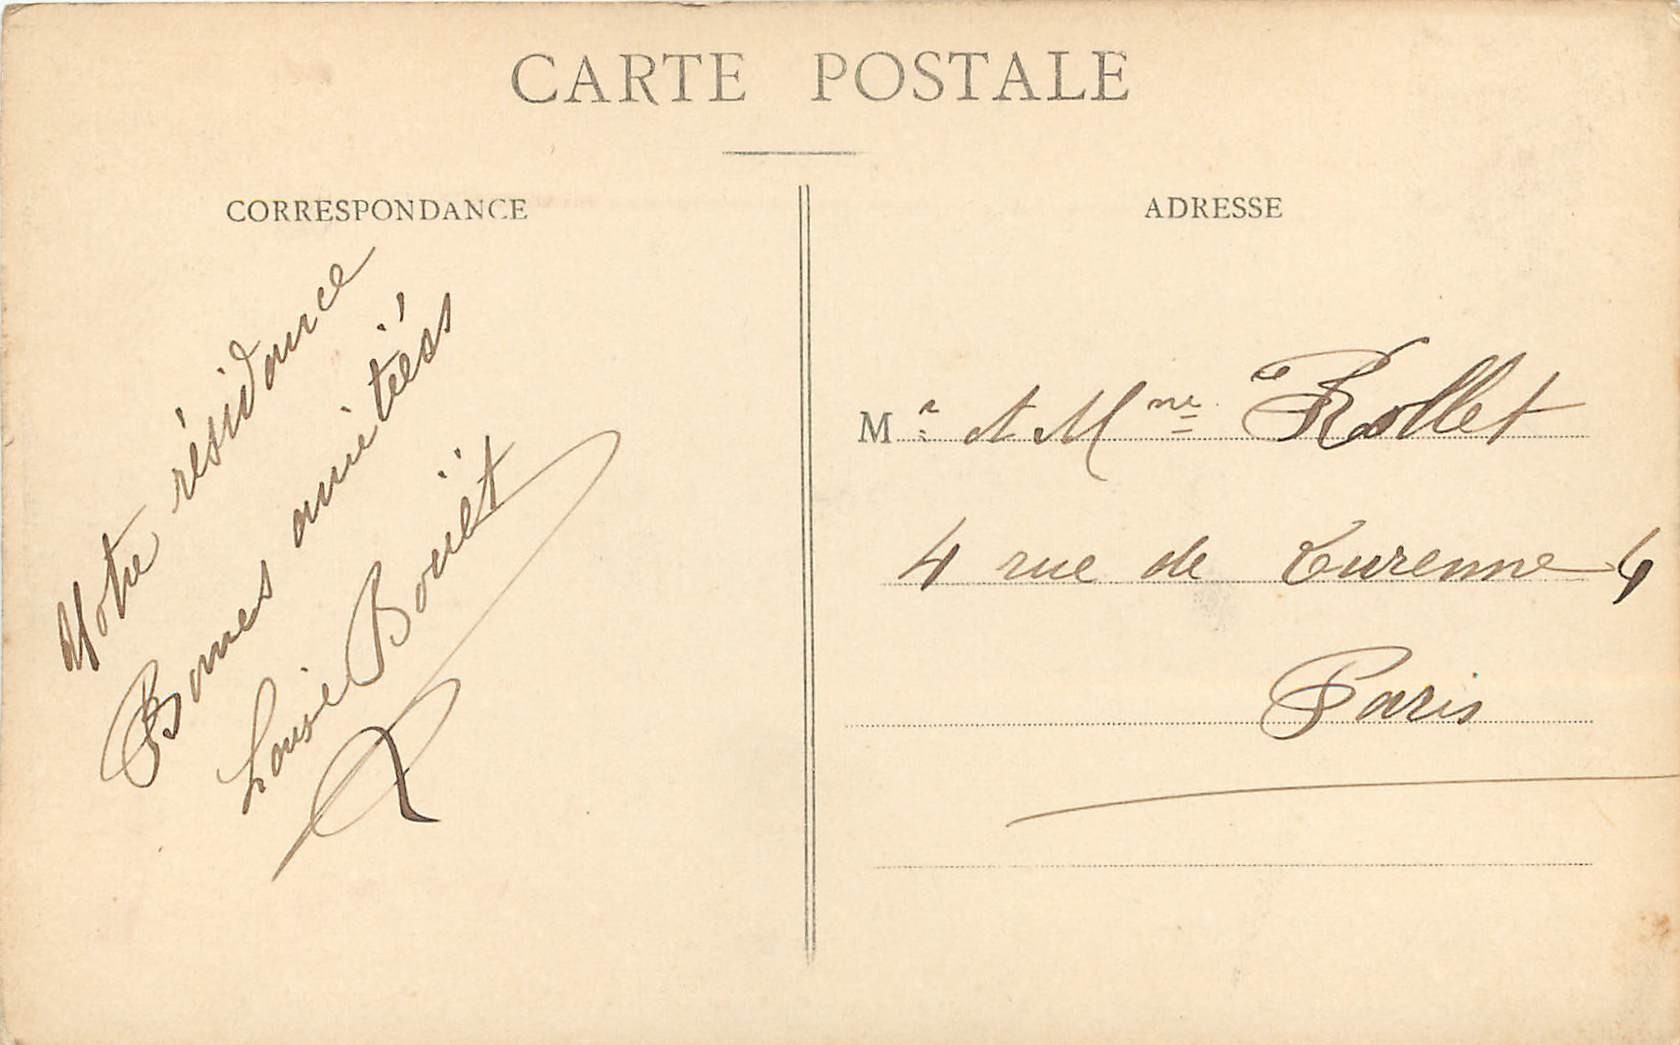 CARTE POSTALE
CORRESPONDANCE
Notre résidance
Bonnes amitiéss
Louise Bouët
ADRESSE
Mr et Mme Rollet
4 rue de Turenne 4
Paris